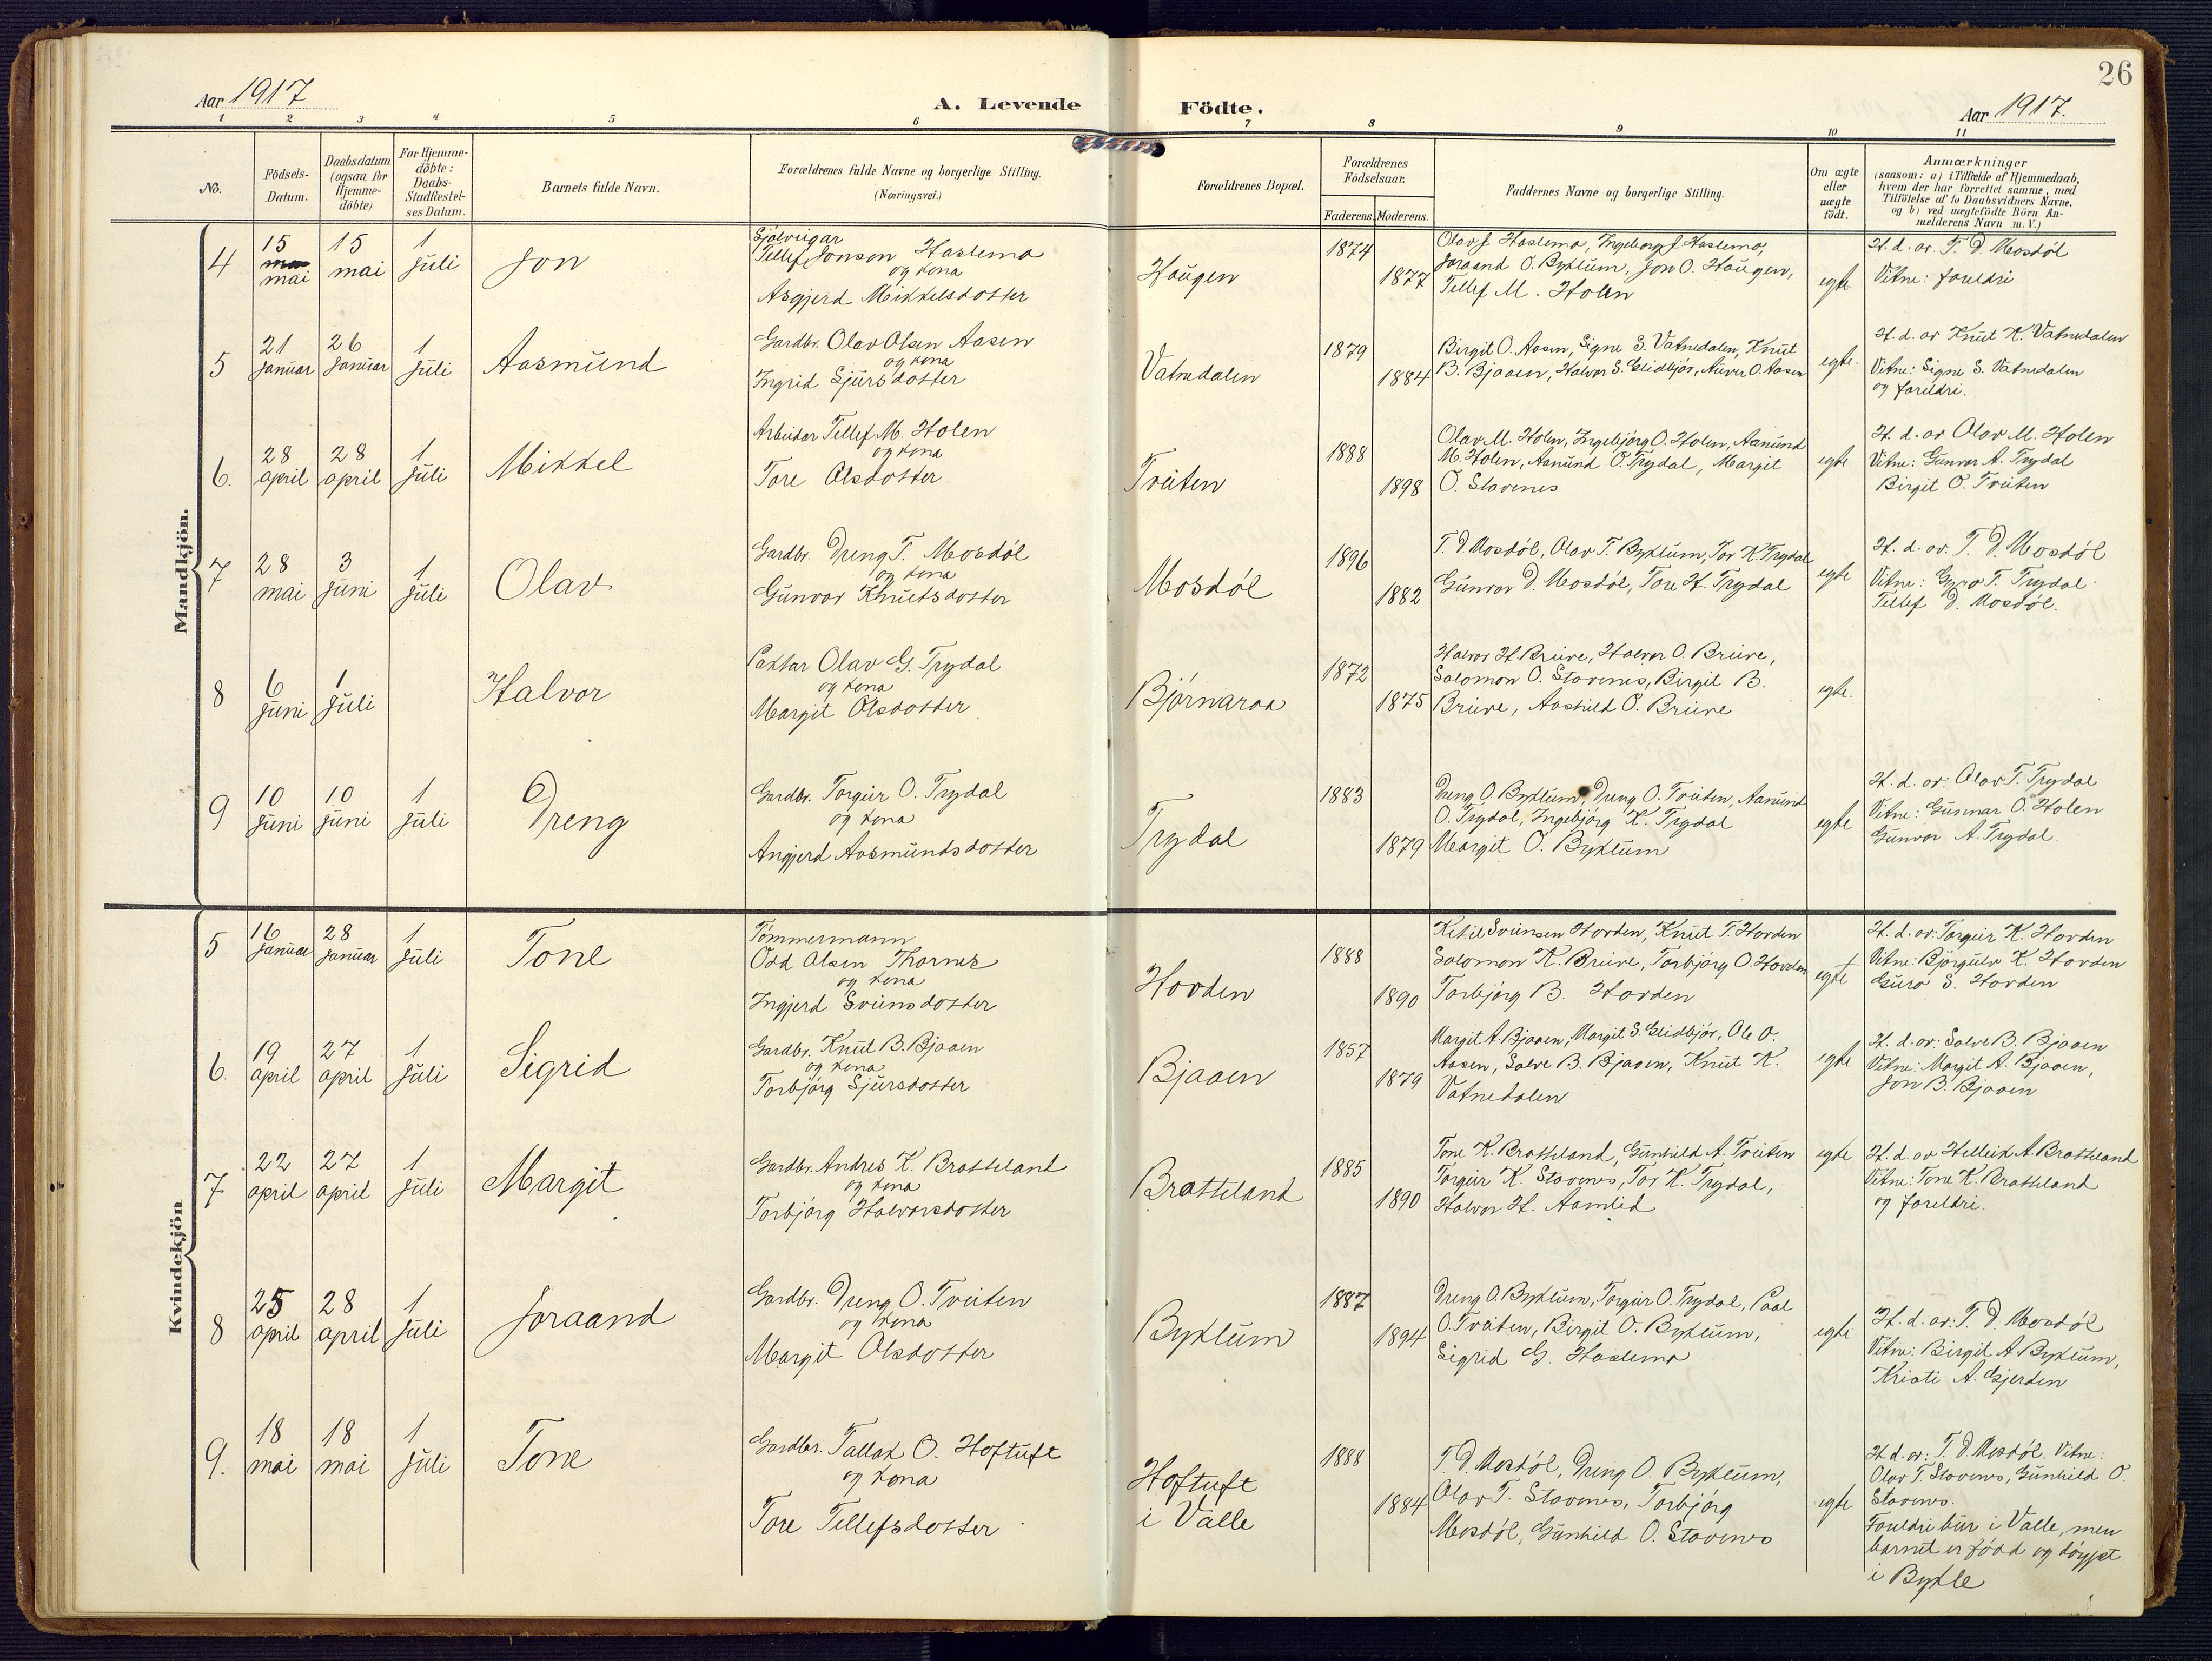 26
Aar 1917
A. Levende
Födte.
Aar 1917.
1 2 3 4 5 6 7 8 9 10 11
No.
Födsels-
Datum.
Daabsdatum
(ogsaa for
Hjemme-
döbte)
For Hjemme-
döbte:
Daabs-
Stadfæstel-
ses Datum.
Barnets fulde Navn.
Forældrenes fulde Navne og borgerlige Stilling.
(Næringsvei.)
Forældrenes Bopæl.
Forældrenes
Födselsaar.
Faderens.
Moderens.
Faddernes Navne og borgerlige Stilling.
Om ægte
eller
uægte
födt.
Anmærkninger
(saasom: a) i Tilfælde af Hjemmedaab,
hvem der har forrettet samme, med
Tilföielse af to Daabsvidners Navne.
og b) ved uægtefödte Börn An-
melderens Navn m. V.)
Mandkjön.
4
15
mai
15
mai
1
juli
Jon
Sjølveigar
Tellef Jonson Haslemo
og kona
Asgjerd Mikkelsdotter
Haugen
1874
1877
Olav J. Haslemo, Ingeborg J. Haslemo,
Joraand O. Byklum, Jon O. Haugen,
Tellef M. Holen
egte
H. d. av. T. D. Mosdøl
Vitne: foreldri
5
21
januar
26
januar
1
juli
Aasmund
Gardbr. Olav Olsen Aasen
og kona
Ingrid Sjursdotter
Vatnedalen
1879
1884
Birgit O. Aasen, Signe S. Vatnedalen, Knut
B. Bjaaen, Halvor S. Glidbjør, Auver O. Aasen
egte.
H. d. av Knut K. Vatnedalen
Vitne: Signe S. Vatnedalen
og foreldri.
6.
28
april
28
april
1
juli
Mikkel
Arbeidar Tellef M. Holen
og kona
Tore Olsdotter
Tveiten
1888
1898
Olav M. Holen, Ingebjørg O. Holen, Aanund
M. Holen, Aanund O. Trydal, Margit
O. Stavenes
egte
H. d. av Olav M. Holen
Vitne: Gunvor A. Trydal
Birgit O. Tveiten
7
28
mai
3
juni
1
juli
Olav
Gardbr. Dreng T. Mosdøl
og kona
Gunvor Knutsdotter
Mosdøl
1896
1882
T. D. Mosdøl, Olav T. Byklum, Tor K. Trydal
Gunvor D. Mosdøl, Tore H. Trydal
egte
H. d. av: T. D. Mosdøl
Vitne: Gyro T. Trydal
Tellef D. Mosdøl.
8
6
juni
1
juli
Halvor
Paktar Olav G. Trydal
og kona
Margit Olsdotter
Bjørnaraa
1872
1875
Halvor H. Breive, Halvor O. Breive,
Salomon O. Stavenes, Birgit B.
Breive, Aashild O. Breive
egte.
9
10
juni
10
juni
1
juli
Dreng
Gardbr. Torgeir O. Trydal
og kona
Angjerd Aasmundsdotter
Trydal
1883
1879
Dreng O. Byklum, Dreng O. Tveiten, Aanund
O. Trydal, Ingebjørg K. Trydal
Margit O. Byklum
egte
H. d. av: Olav T. Trydal
Vitne: Gunnar O. Holen
Gunvor A. Trydal.
Kvindekjön
5
16
januar
28
januar
1
juli
Tone
Tømmermann
Odd Olsen Thornes
og kona
Ingjerd Sveinsdotter
Hovden
1888
1890
Ketil Sveinsen Hovden, Knut T. Hovden
Salomon K. Breive, Torbjørg O. Hovden
Torbjørg B. Hovden
egte
H. d. av: Torgeir K. Hovden
Vitne: Bjørgulv K. Hovden
Guro S. Hovden
6.
19
april
27
april
1
juli
Sigrid
Gardbr. Knut B. Bjaaen
og kona
Torbjørg Sjursdotter
Bjaaen
1857
1879
Margit A. Bjaaen, Margit S. Glidbjør, Ole O.
Aasen, Salve B. Bjaaen, Knut K.
Vatnedalen
egte
H. d. av: Salve B. Bjaaen
Vitne: Margit A. Bjaaen,
Jon B. Bjaaen
7
22
april
27
april
1
juli
Margit
Gardbr. Andres K. Bratteland
og kona
Torbjørg Halvorsdotter
Bratteland
1885
1890
Tone K. Bratteland, Gunhild A. Tveiten
Torgeir K. Stavenes, Tor K. Trydal,
Halvor H. Aamlid
egte
H. d. av Helleik A. Bratteland
Vitne: Tone K. Bratteland
og foreldri.
8
25
april
28
april
1
juli
Joraand
Gardbr. Dreng O. Tveiten
og kona
Margit Olsdotter
Byklum
1887
1894
Dreng O. Byklum, Torgeir O. Trydal, Paal
O. Tveiten, Birgit O. Byklum,
Sigrid G. Haslemo
egte
H. d. av: T. D. Mosdøl
Vitne: Birgit A. Byklum,
Kristi A. Gjerden
9.
18
mai
18
mai
1
juli
Tone
Gardbr. Tallak O. Hoftuft
og kona
Tore Tellefsdotter
Hoftuft
i Valle
1888
1884
T. D. Mosdøl, Dreng O. Byklum,
Olav T. Stavenes, Torbjørg
Mosdøl, Gunhild O. Stavenes
egte
H. d. av: T. D. Mosdøl. Vitne:
Olav T. Stavenes, Gunhild O.
Stavenes.
Foreldri bur i Valle, men
barnet er fødd og døypt
i Bykle